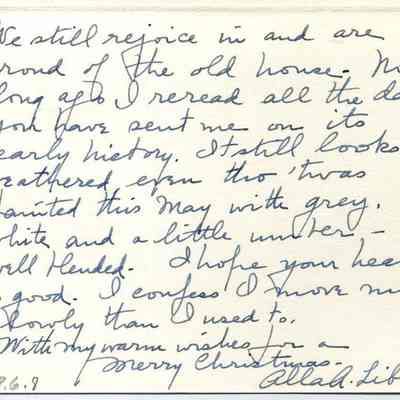 We still rejoice in and are
proud of the old house. No
long ago I reread all the da
you have sent me on its
early history. It still looks
eathered even tho 'twas
painted this May with grey,
white and a little umber -
well blended. I hope your hea
s good. I confess I move mo
lowly than I used to.
With my warm wishes for a
Merry Christmas.
Alla A. Lib
9.6.9